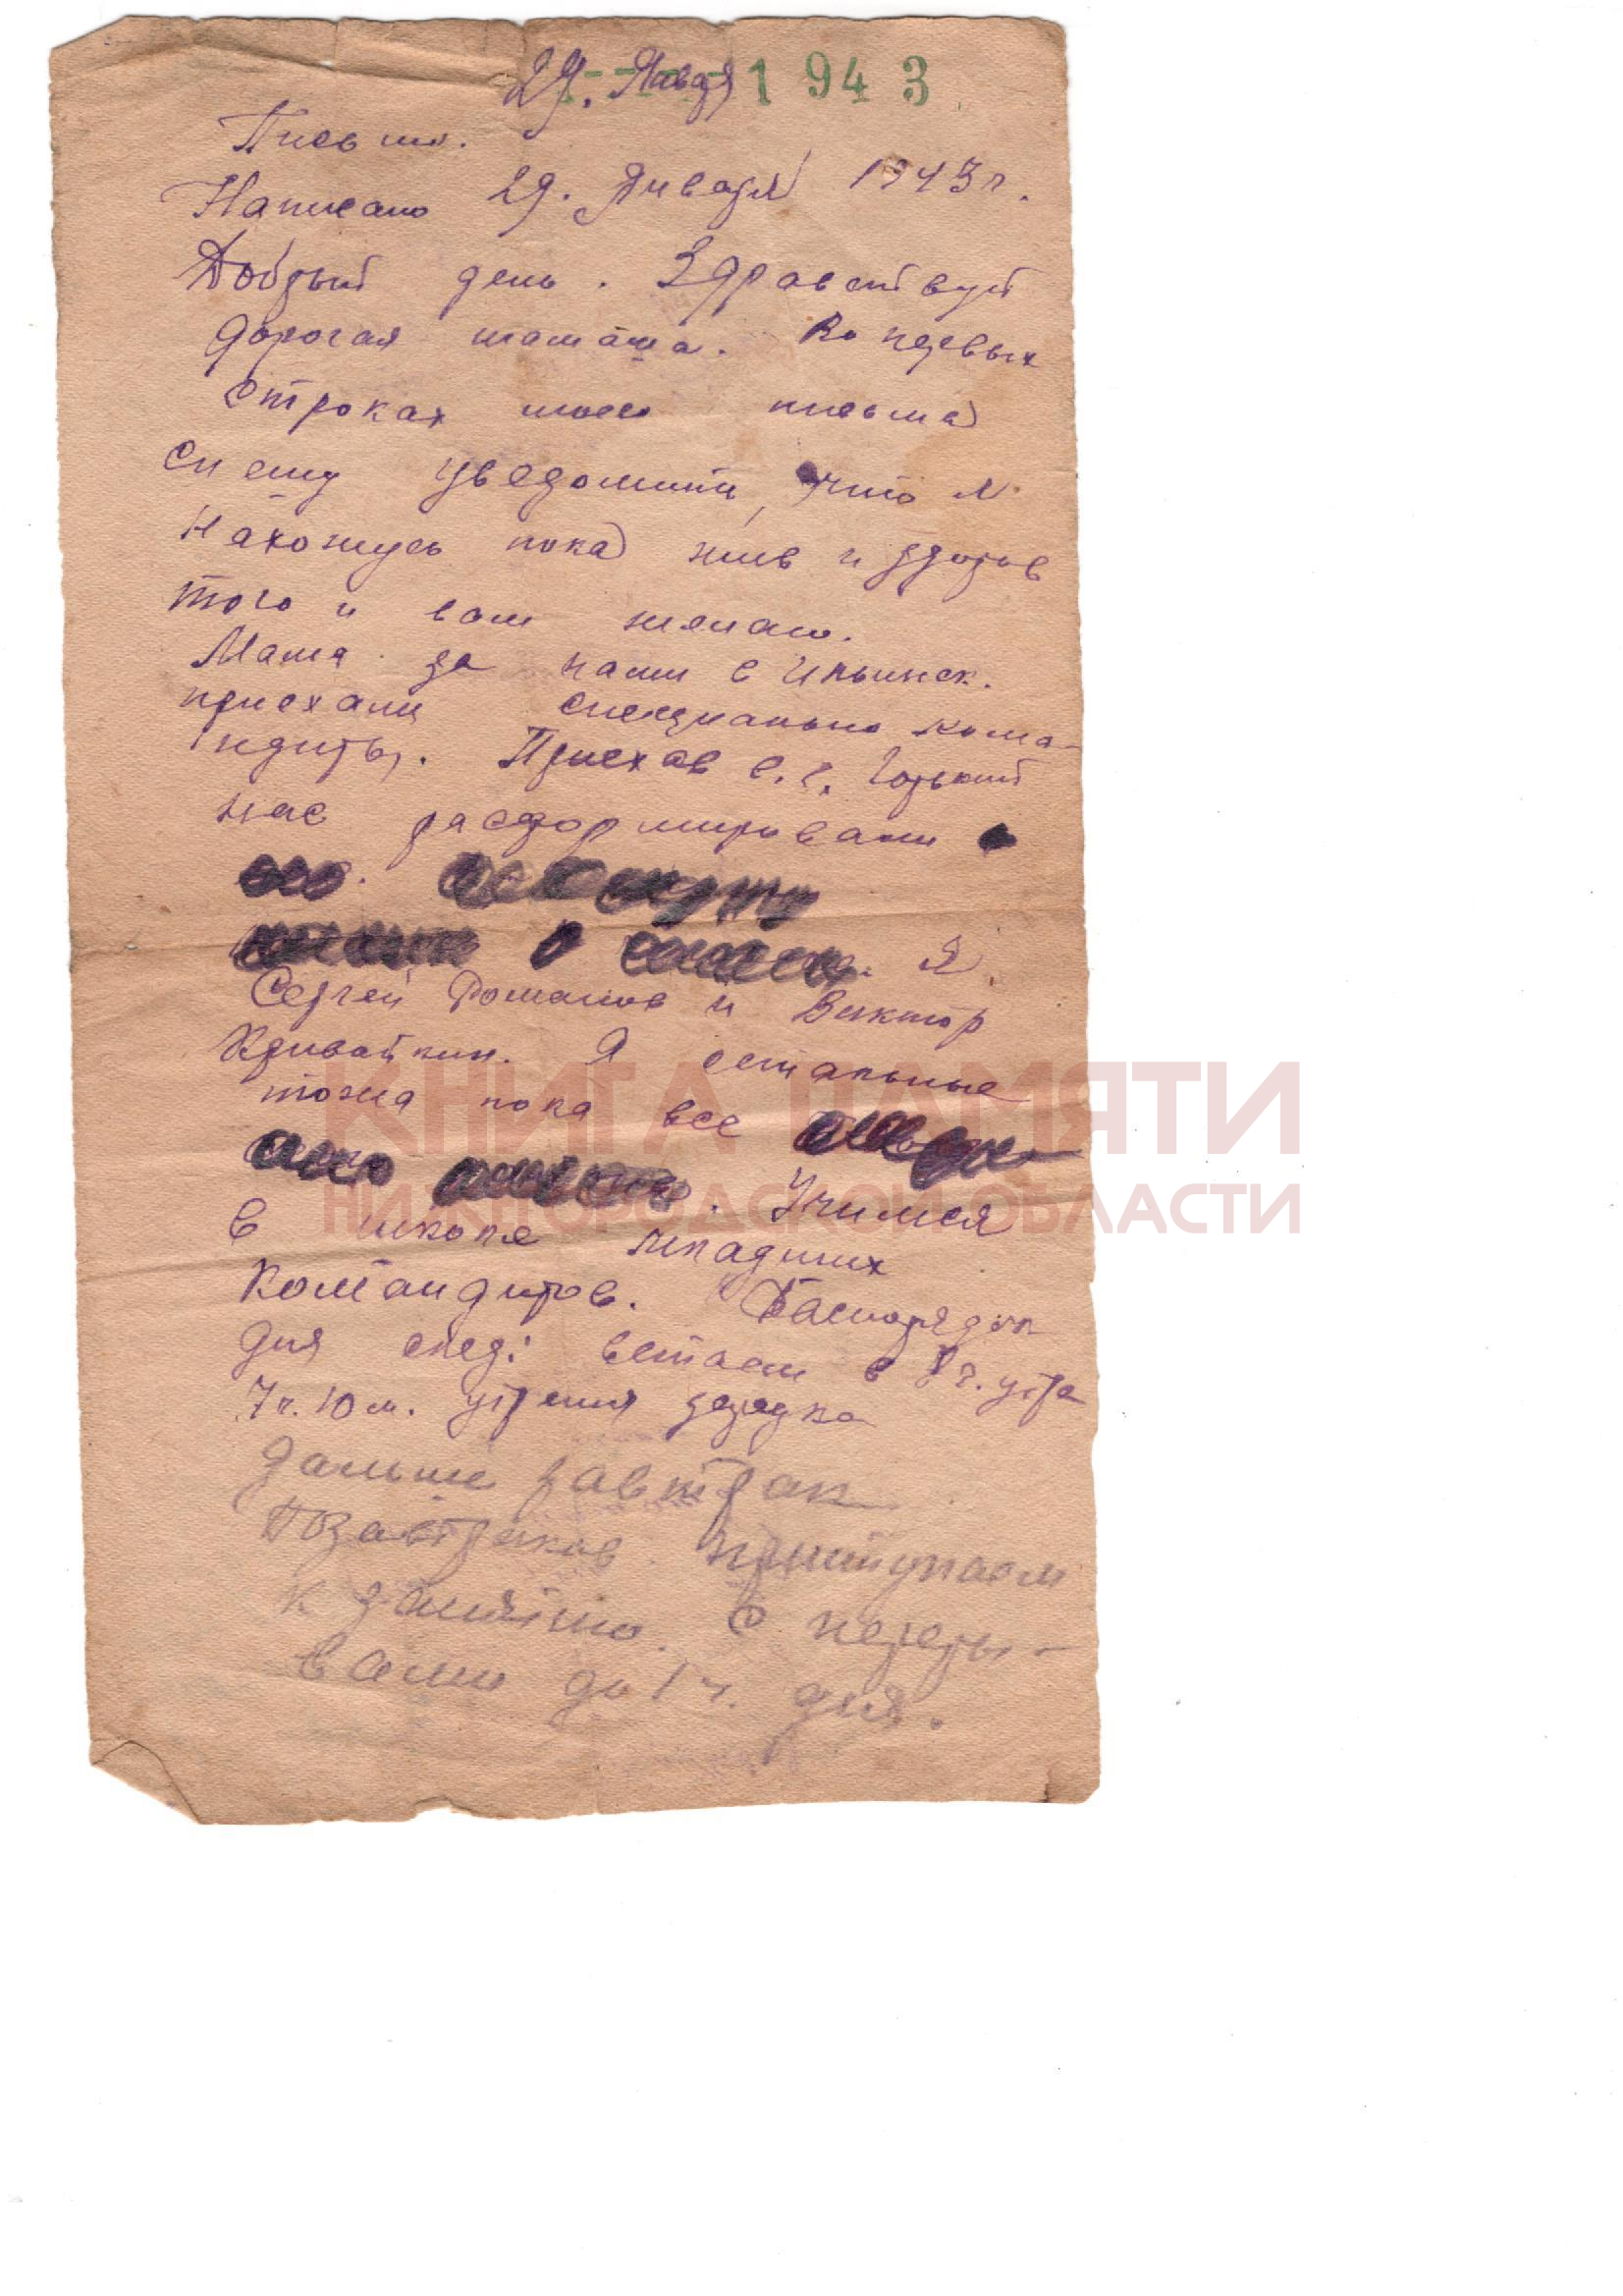 29. Январ 1943
Письмо.
Написано 29. Января 1943 г.
Добрый день. Здравствуй
дорогая мамаша. Во первых
строках моего письма
спешу уведомить, что я
нахожусь пока жив и здоров
того и вам желаю.
Мама за нами в Ильинск.
приехали специально кома-
ндиры. Приехав в г. Горький
нас расформировали
Я.
Сергей Романов и Виктор
Кривайкин. А остальные
тожа пока все
Учимся
в школе младших
командиров. Распорядок
дня след: встаем в 7 ч. утра
7 ч. 10 м. утреня зарядка
дальше завтрак
Позавтракав приступаем
к занятию. С переры-
вами до 1 ч. дня.
КНИГА ПАМЯТИ
НИЖНГОРОДСКОЙ ОБЛАСТИ